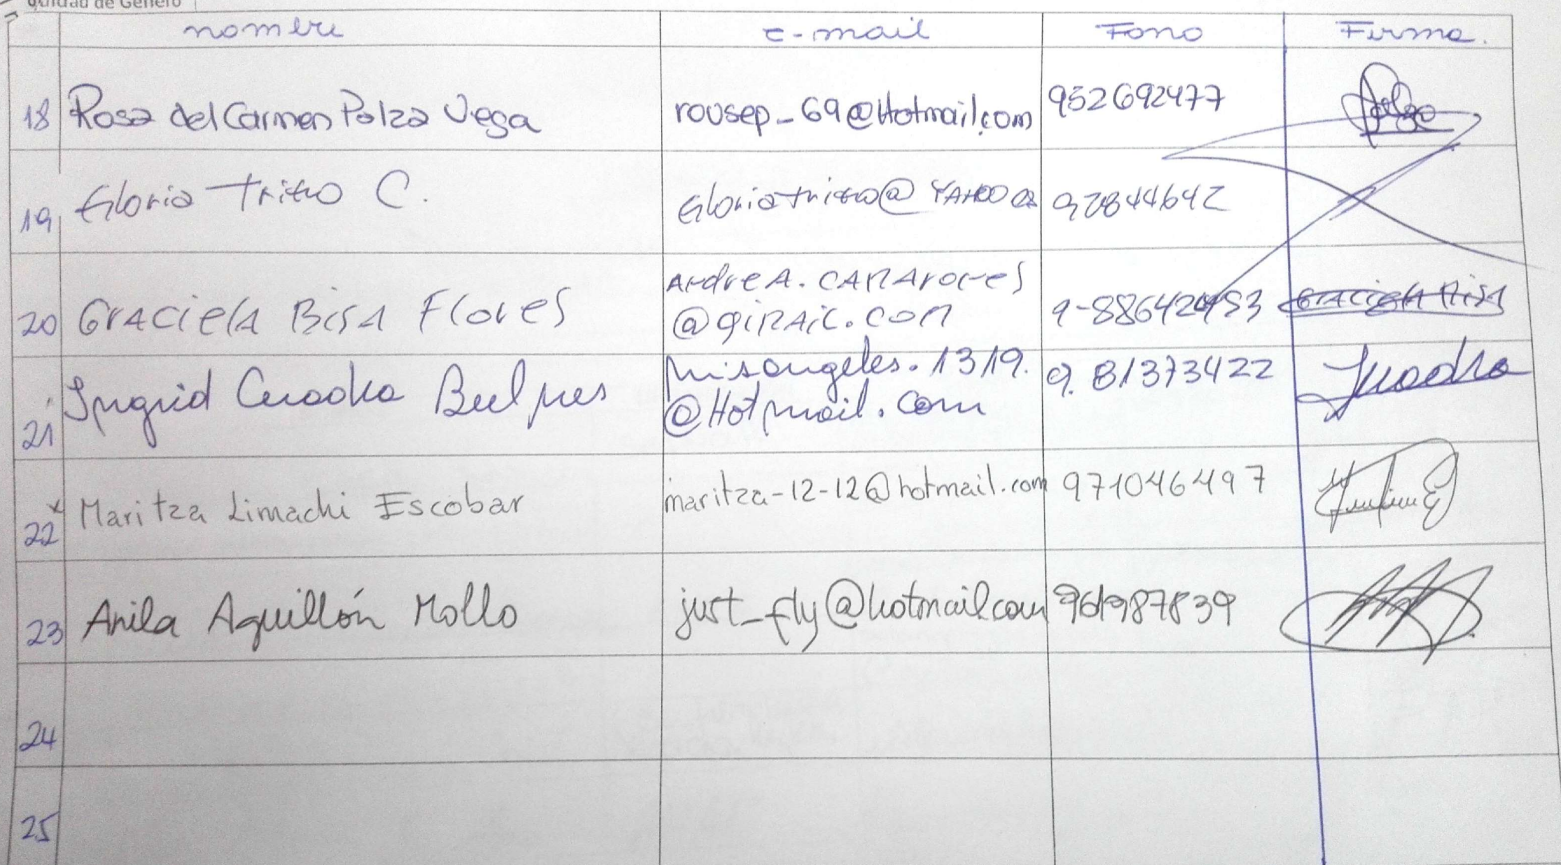 Unidad de Género
nombre e-mail Fono Firma.
18 Rosa del Carmen Palza Vega rousep_69@Hotmail.com 952692477
19 Gloria Tritto C. Gloriatritto@YAHOO.es 92844642
20 GRACIELA BISA FLORES ANDREA.CAÑAROTES 9-88642453 GRACIELA BISA
@GMAIL.COM
21 Ingrid Cuadra luisangeles.1319. 9.81373422 Jcuadra
@Hotmail.com
22 Maritza Limachi Escobar maritza-12-12@hotmail.com 971046497
23 Anila Aquillón Mollo just_fly@hotmail.com 961987839
24
25